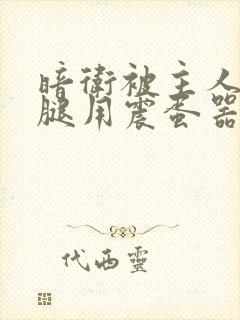 暗衛被主人
腿用震蛋器
代西靈